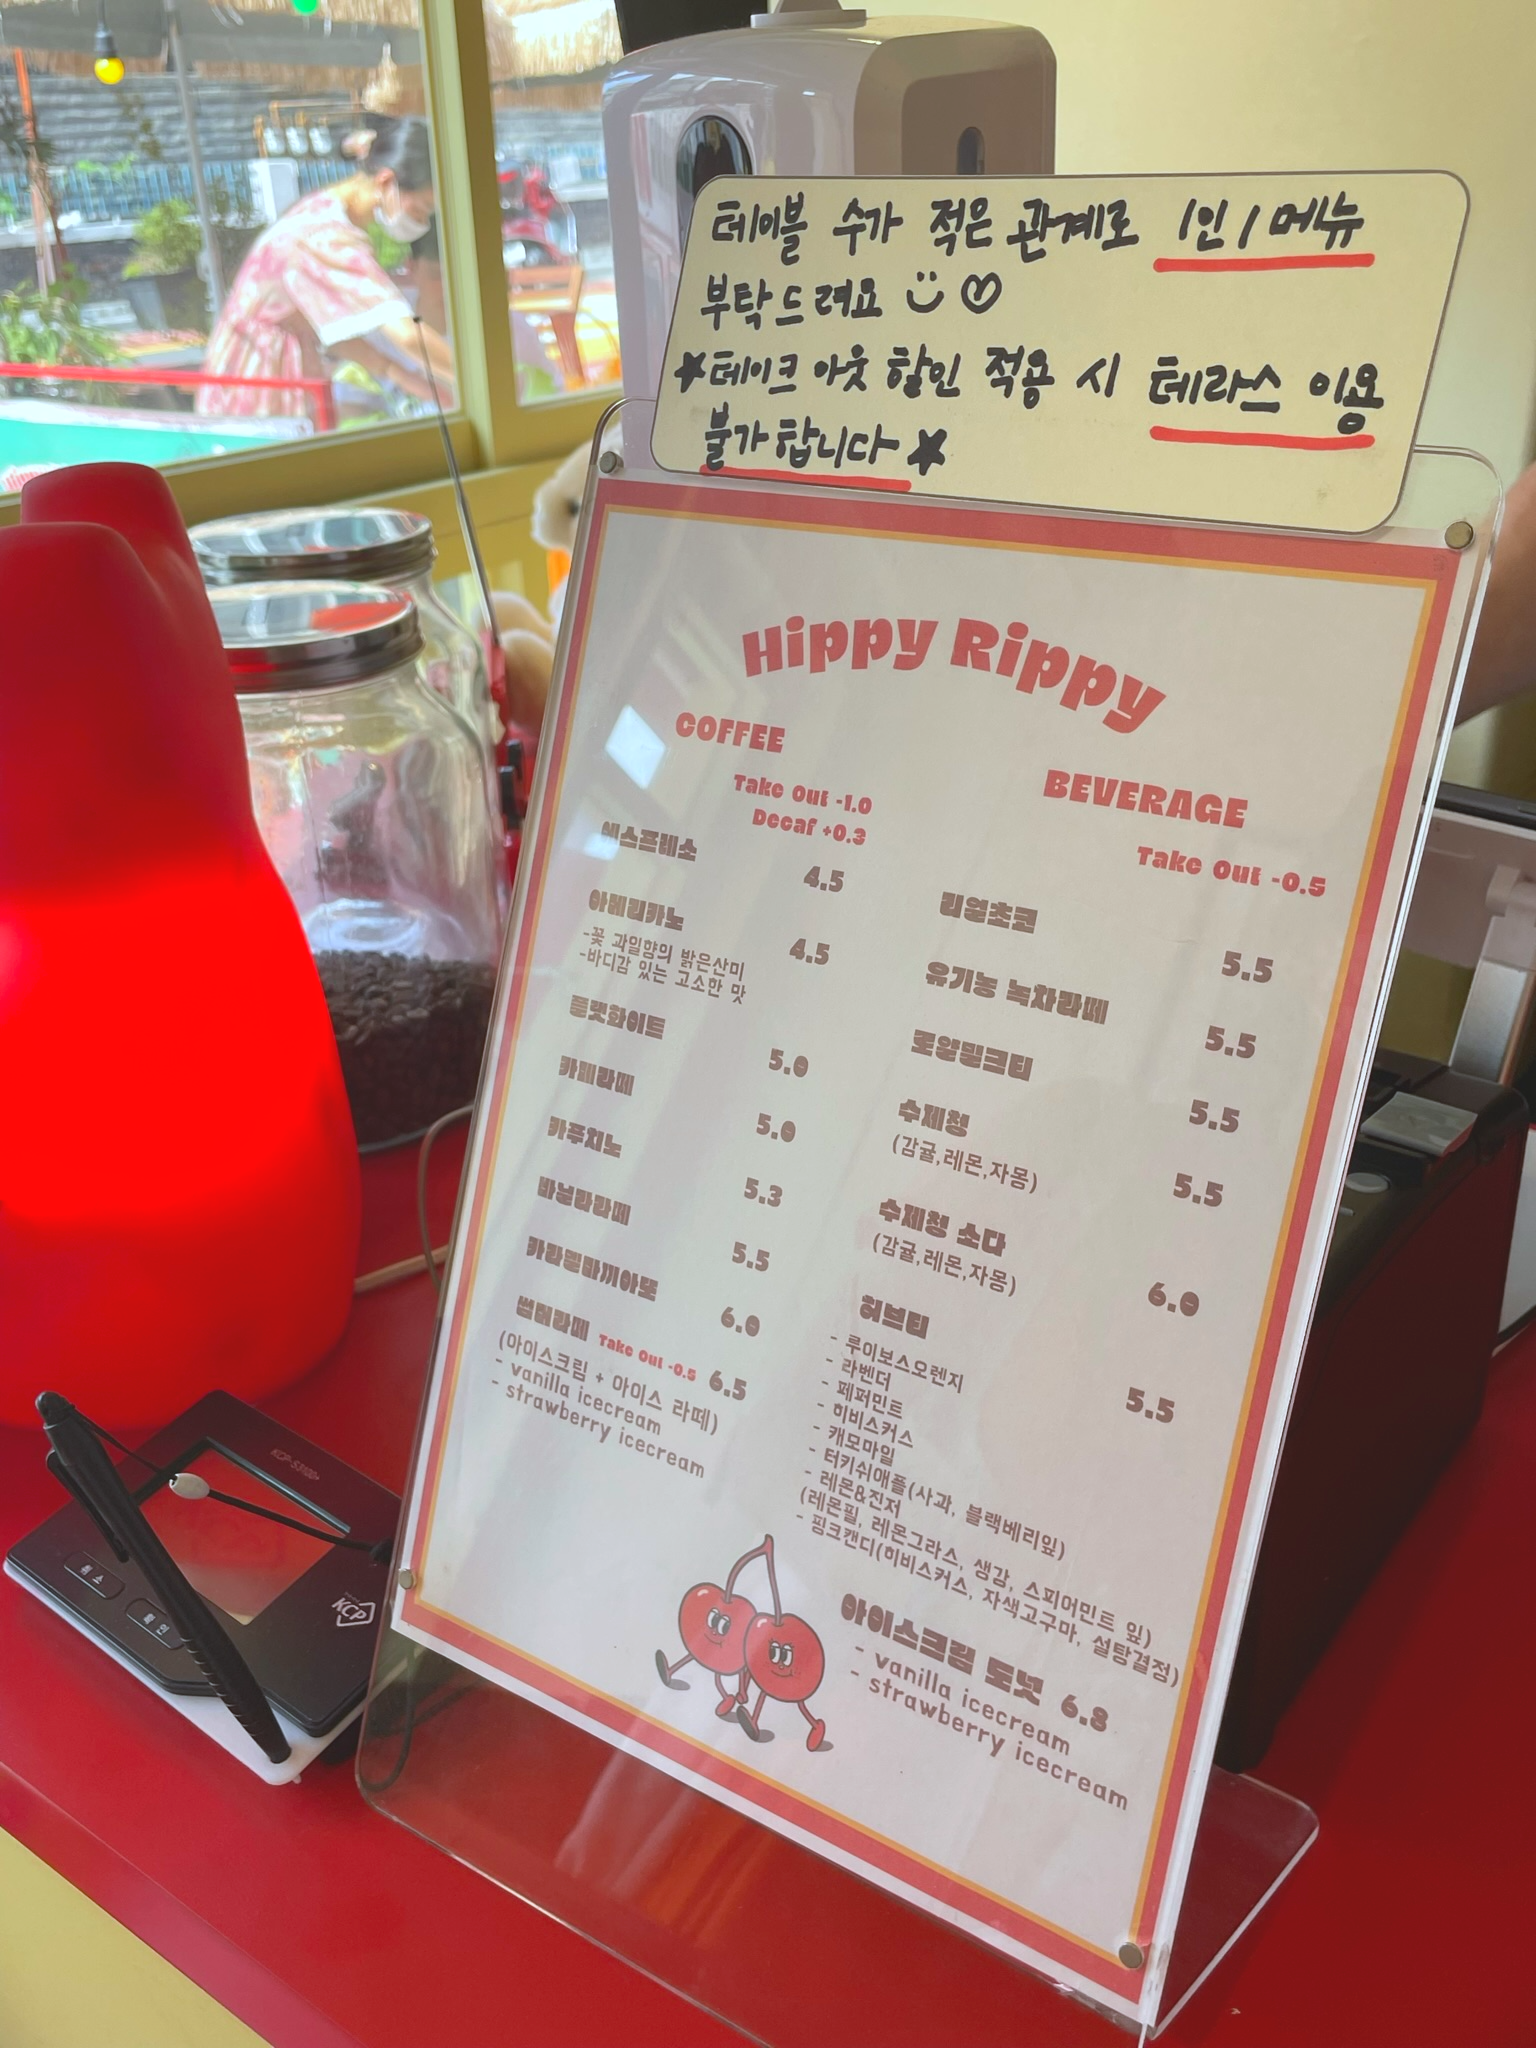 테이블 수가 적은 관계로 1인 1메뉴
부탁드려요
테이크 아웃 할인 적용 시 테라스 이용
불가합니다
Hippy Rippy
COFFEE
Take Out -1.0
Decaf +0.3
에스프레소 4.5
아메리카노 4.5
-꽃 과일향의 밝은산미
-바디감 있는 고소한 맛
플랫화이트 5.0
카페라떼 5.0
카푸치노 5.3
바닐라라떼 5.5
카라멜마끼아또 6.0
썸머라떼 Take Out -0.5 6.5
(아이스크림 + 아이스 라떼)
- vanilla icecream
- strawberry icecream
BEVERAGE
Take Out -0.5
리얼초코 5.5
유기농 녹차라떼 5.5
로얄밀크티 5.5
수제청 5.5
(감귤,레몬,자몽)
수제청 소다 6.0
(감귤,레몬,자몽)
허브티 5.5
- 루이보스오렌지
- 라벤더
- 페퍼민트
- 히비스커스
- 캐모마일
- 터키쉬애플(사과, 블랙베리잎)
- 레몬&진저
(레몬필, 레몬그라스, 생강, 스피어민트 잎)
- 핑크캔디(히비스커스, 자색고구마, 설탕결정)
아이스크림 도넛 6.8
- vanilla icecream
- strawberry icecream
KCP-S3100+
취소
확인
KCP